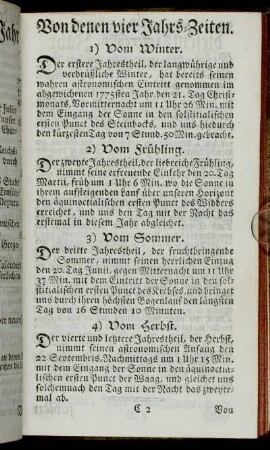 Von denen vier Jahrs-Zeiten.
1) Vom Winter.
Der erstere Jahrestheil, der langwührige und
verdrüßliche Winter, hat bereits seinen
wahren astronomischen Eintritt genommen im
abgewichenen 1775sten Jahr den 21. Tag Christ-
monats, Vormitternacht um 11 Uhr 26 Min. mit
dem Eingang der Sonne in den solstitialischen
ersten Punct des Steinbocks, und uns hiedurch
den kürzesten Tag von 7 Stund. 50 Min. gebracht.
2) Vom Frühling.
Der zweyte Jahrestheil, der liebreiche Frühling,
nimmt seine erfreuende Einkehr den 20. Tag
Martii, frühm 1 Uhr 6 Min. wo die Sonne in
ihren aufsteigenden Lauf über unseren Horizont
den äquinoctialischen ersten Punct des Widders
erreichet, und uns den Tag mit der Nacht das
erstemal in diesem Jahr abgleichet.
3) Vom Sommer.
Der dritte Jahrestheil, der fruchtbringende
Sommer, nimmt seinen herrlichen Einzug
den 20. Tag Junii, gegen Mitternacht um 11 Uhr
37 Min. mit dem Eintritt der Sonne in den solsti-
tialischen ersten Punct des Krebses, und bringet
uns durch ihren höchsten Bogenlauf den längsten
Tag von 16 Stunden 10 Minuten.
4) Vom Herbst.
Der vierte und letztere Jahrestheil, der Herbst,
nimmt seinen astronomischen Anfang den
22 Septembris, Nachmittags um 1 Uhr 15 Min.
mit dem Eingang der Sonne in den äquinoctia-
lischen ersten Punct der Waag, und gleichet uns
solchemnach den Tag mit der Nacht das zweyte-
mal ab.
C 2 Von